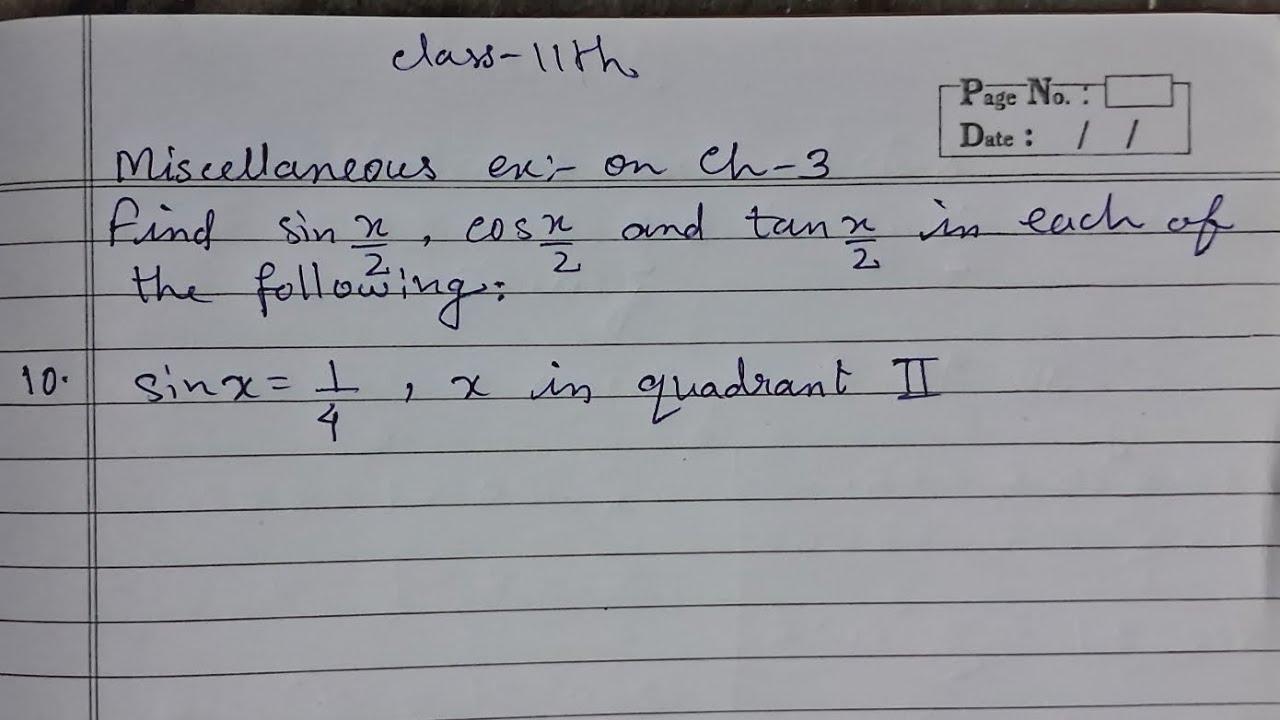 class-11th
Page No. :
Date : / /
Miscellaneous ex:- on Ch-3
find sin x/2, cos x/2 and tan x/2 in each of
the following:
10. sinx = 1/4, x in quadrant II